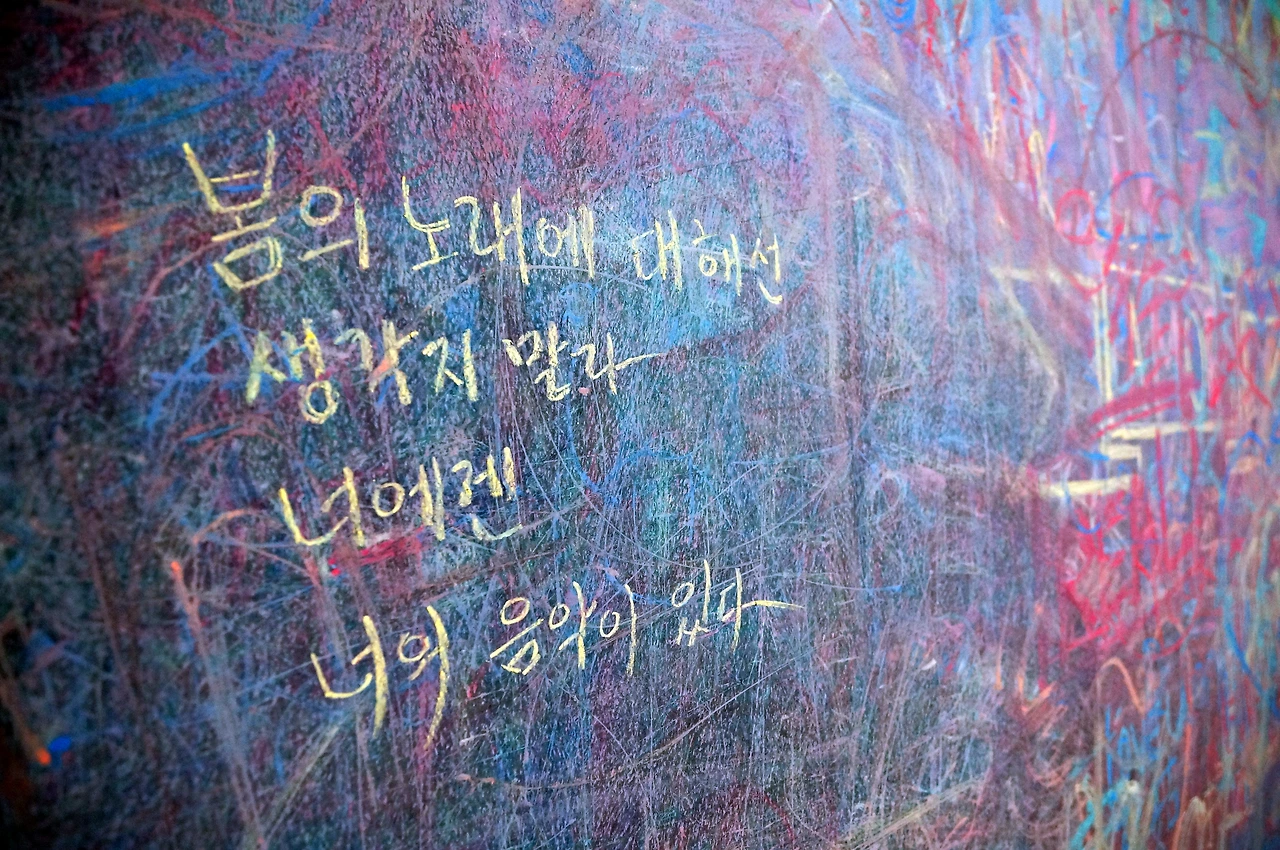 봄의 노래에 대해선
생각지 말라
너에겐
너의 음악이 있다